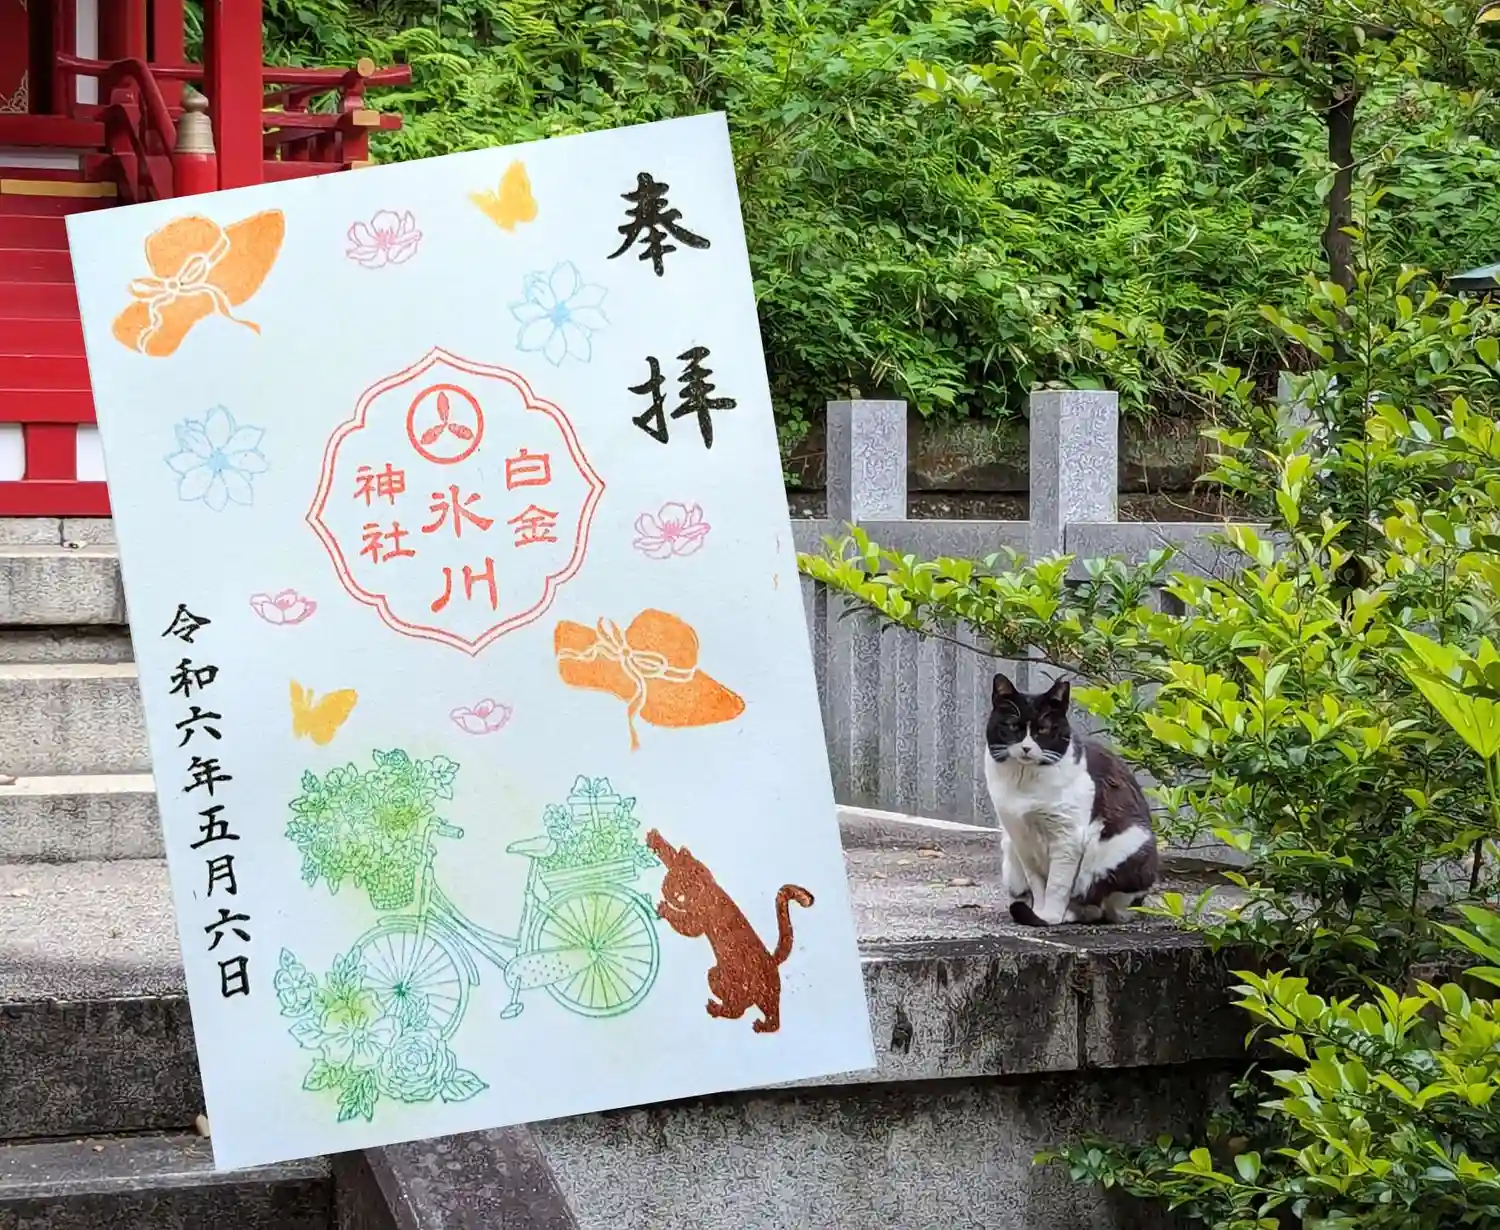 奉拝
白金
氷川
神社
令和六年五月六日